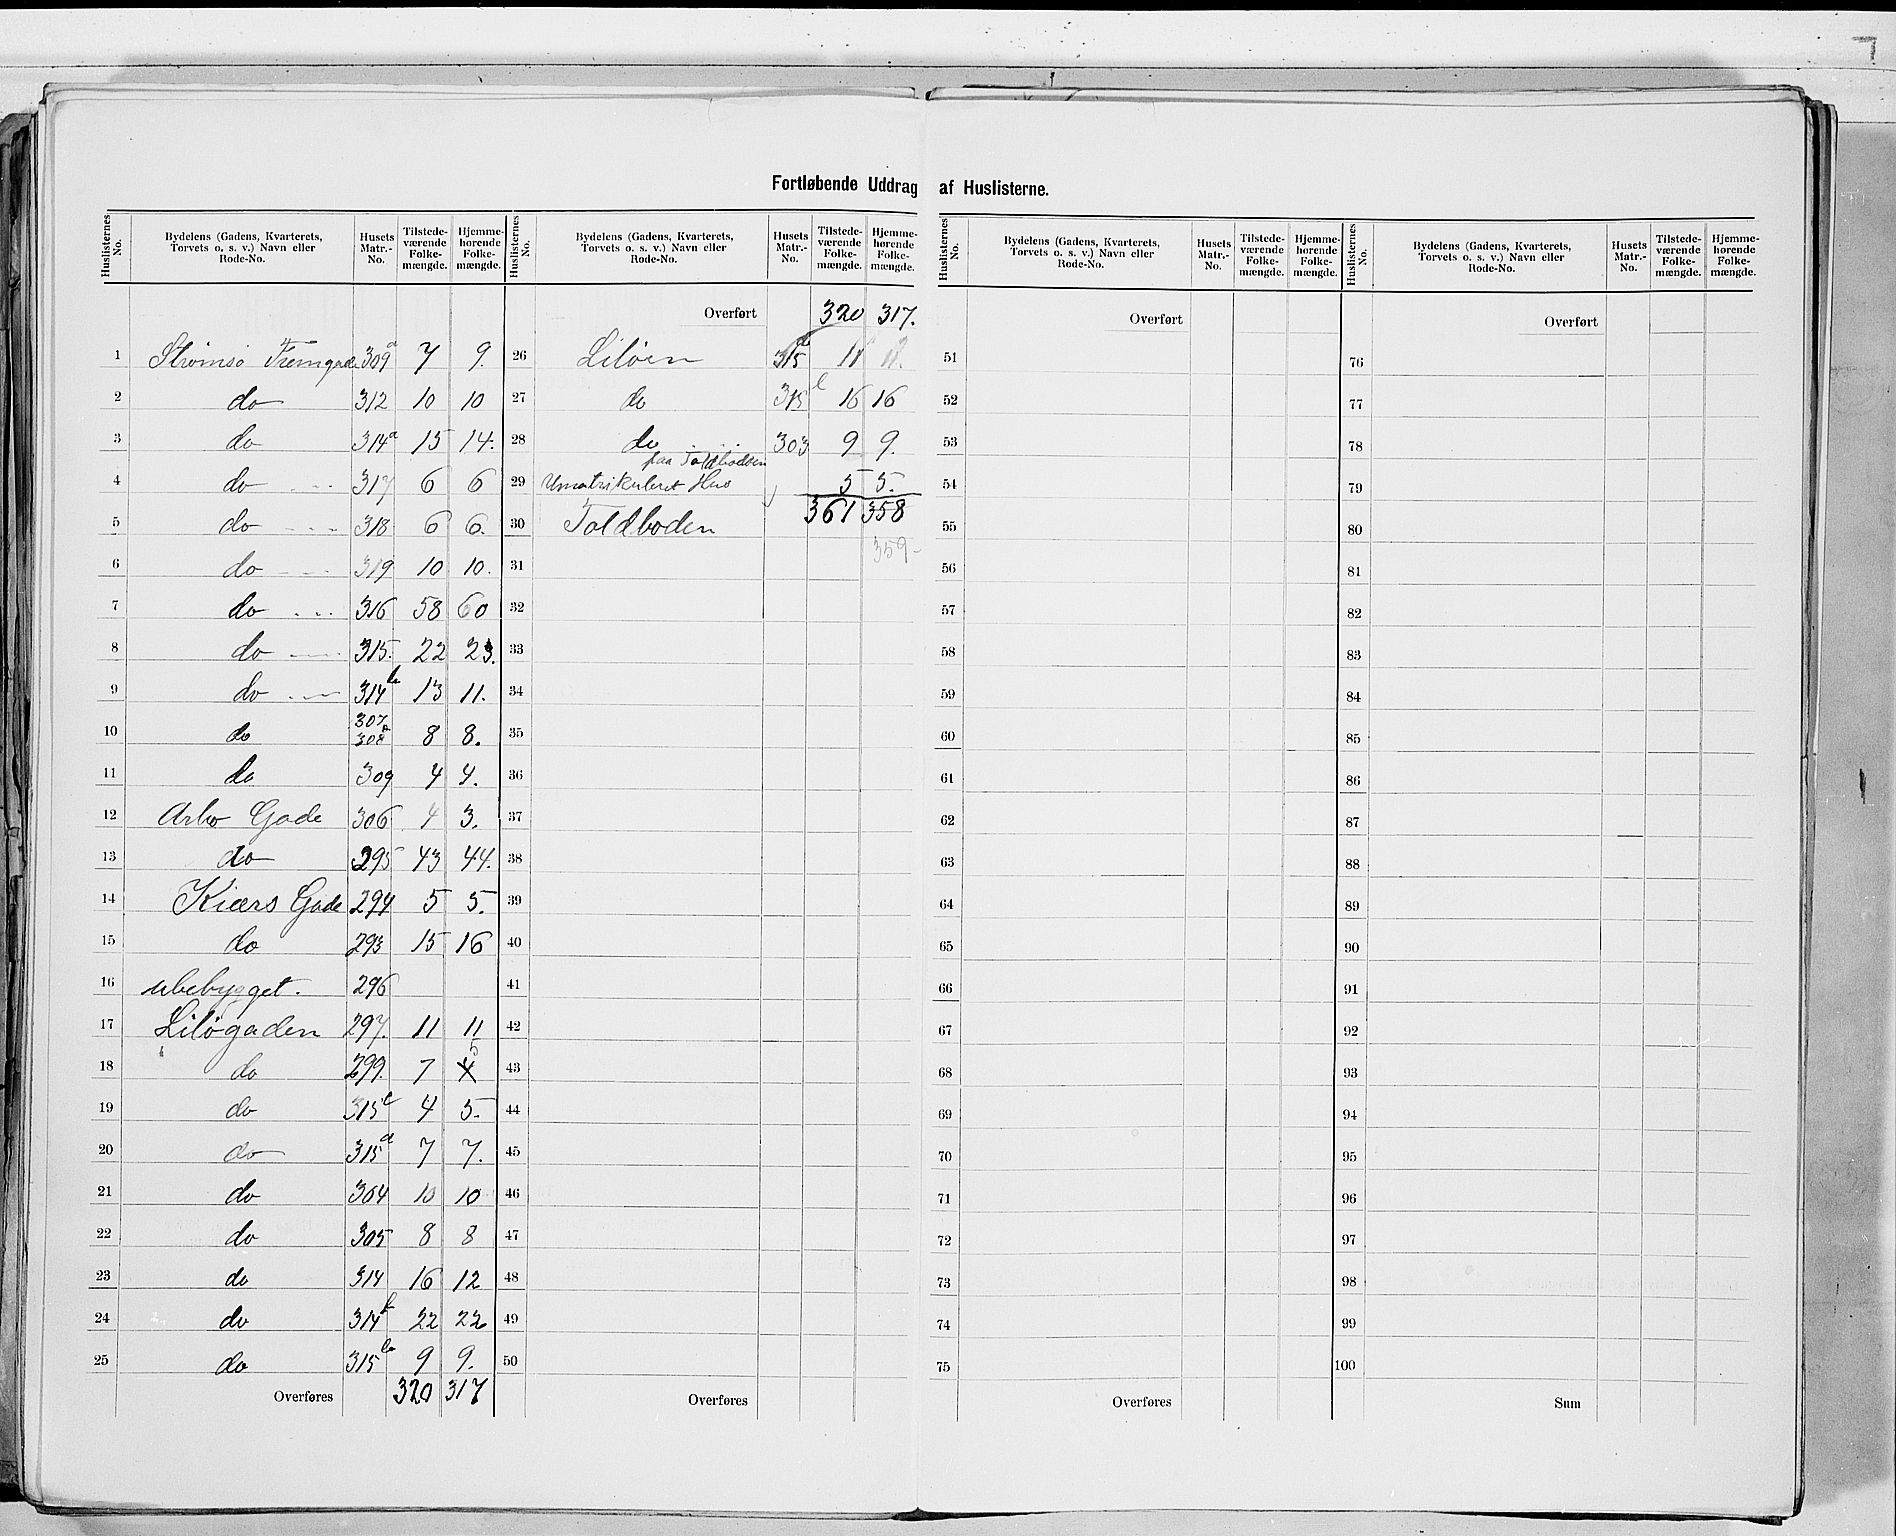 Fortløbende Uddrag af Huslisterne.
Huslisternes No. Bydelens (Gadens, Kvarterets, Torvets o. s. v.) Navn eller Rode-No. Husets Matr.-No. Tilstedeværende Folkemængde. Hjemmehørende Folkemængde.
1 Strømsø Tverrgade 309a 7 9.
2 do 312 10 10
3 do 314a 15 14.
4 do 317 6 6
5 do 318 6 6.
6 do 319 10 10.
7 do 316 58 60
8 do 315. 22 23.
9 do 314b 13 11.
10 do 307 308a 8 8.
11 do 309 4 4.
12 Arbo Gade 306 4 3.
13 do 295 43 44.
14 Kiærs Gade 294 5 5.
15 do 293 15 16
16 ubebygget. 296
17 Liløgaden 297. 11 11
18 do 299. 7 4 5
19 do 315c 4 5.
20 do 315d 7 7.
21 do 304 10 10
22 do 305 8 8
23 do 314 16 12
24 do 314 22 22
25 do 315b 9 9.
Overføres 320 317
Huslisternes No. Bydelens (Gadens, Kvarterets, Torvets o. s. v.) Navn eller Rode-No. Husets Matr.-No. Tilstedeværende Folkemængde. Hjemmehørende Folkemængde.
Overført 320 317.
26 Liløen 315 11
27 do 315 16 16
28 do 303 9 9.
paa Toldboden
29 Umatrikuleret Hus 5 5.
30 Toldboden 361 358
359-
31
32
33
34
35
36
37
38
39
40
41
42
43
44
45
46
47
48
49
50
Overføres
Huslisternes No. Bydelens (Gadens, Kvarterets, Torvets o. s. v.) Navn eller Rode-No. Husets Matr.-No. Tilstedeværende Folkemængde. Hjemmehørende Folkemængde.
Overført
51
52
53
54
55
56
57
58
59
60
61
62
63
64
65
66
67
68
69
70
71
72
73
74
75
Overføres
Huslisternes No. Bydelens (Gadens, Kvarterets, Torvets o. s. v.) Navn eller Rode-No. Husets Matr.-No. Tilstedeværende Folkemængde. Hjemmehørende Folkemængde.
Overført
76
77
78
79
80
81
82
83
84
85
86
87
88
89
90
91
92
93
94
95
96
97
98
99
100
Sum